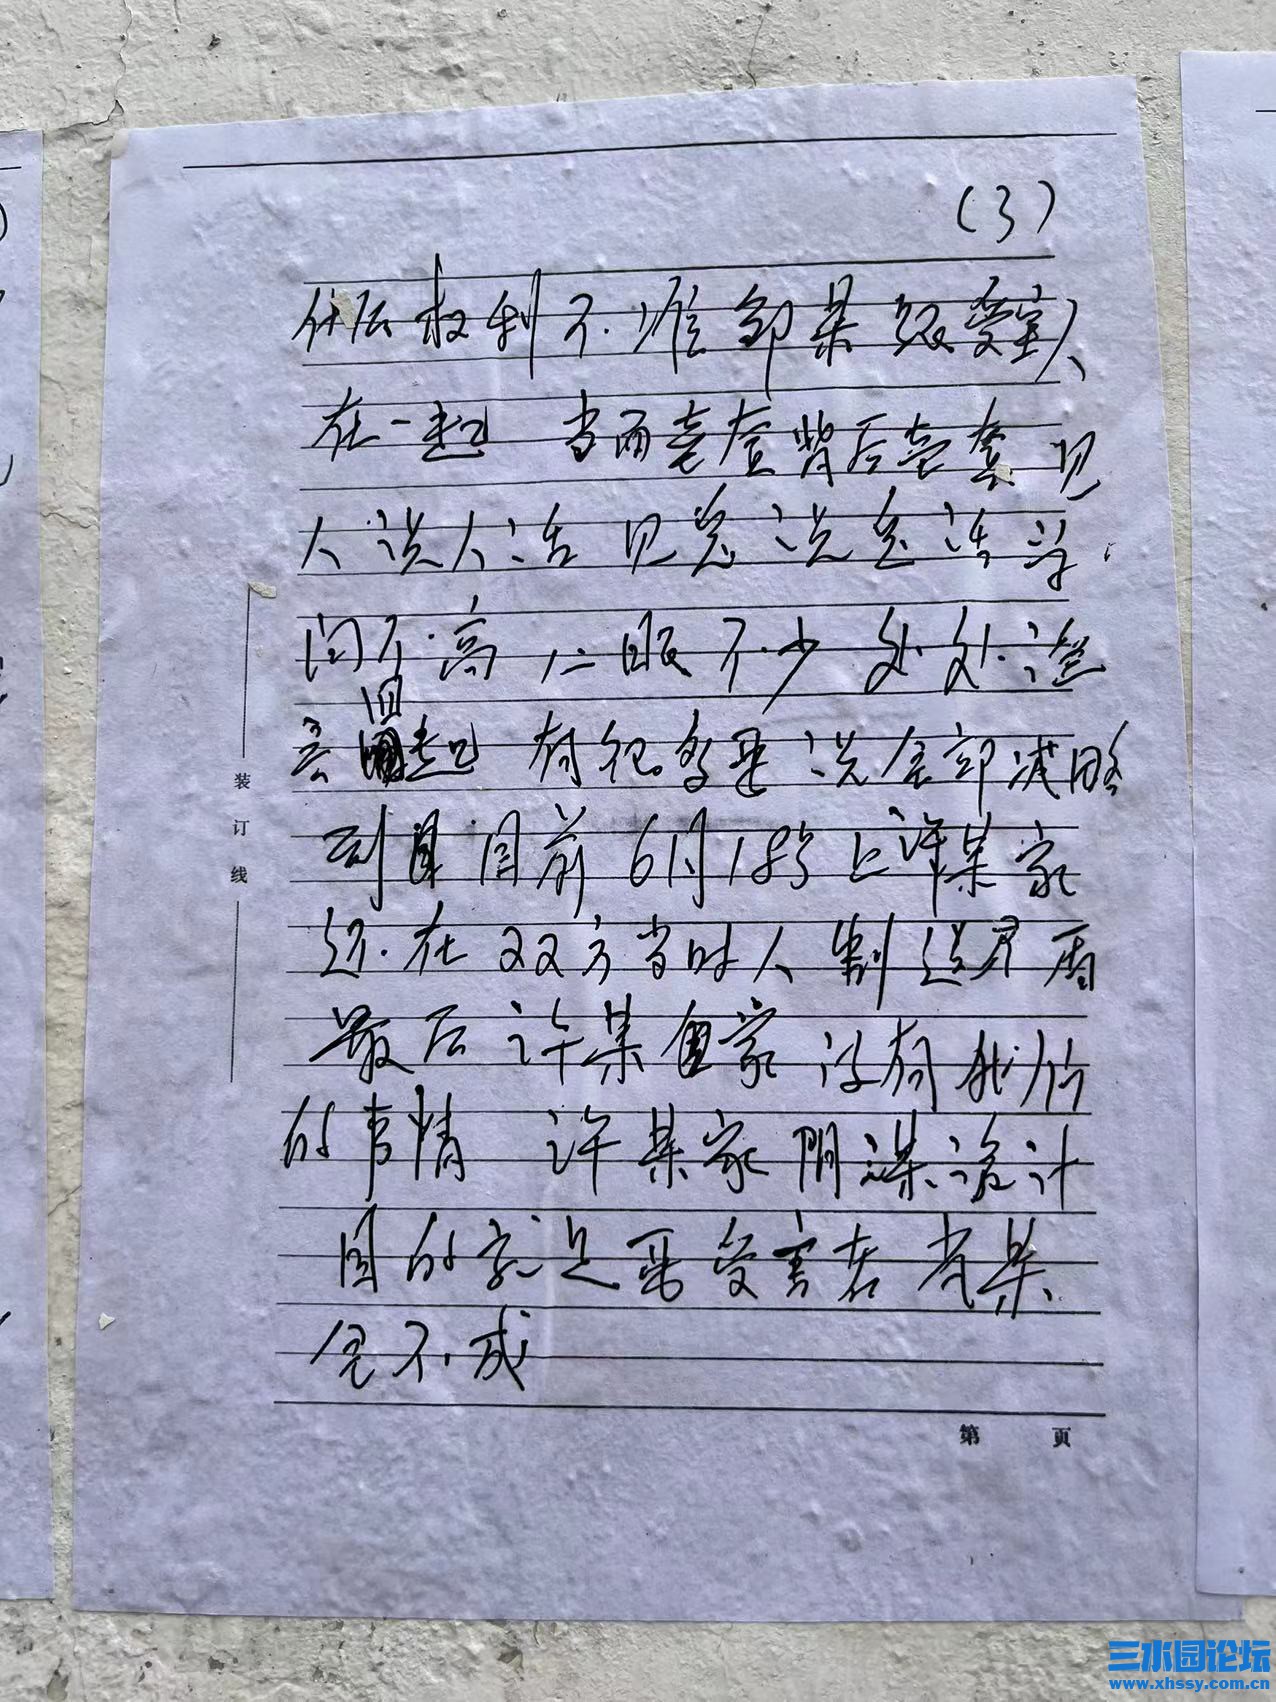 (3)
什后权利不准部某级受害人
在一起 当面一套背后一套 见
人说人话 见鬼说鬼话 学
问不高 心眼不少 处处
回
起 有很多是说 全部减略
到目前6月18号上许某家
还在双方当时人制造矛盾
最后许某自家 没有我所
的事情 许某家阴谋设计
目的就是要受害者 肖某
合不成
装
订
线
第 页
三水园论坛
www.xhssy.com.cn